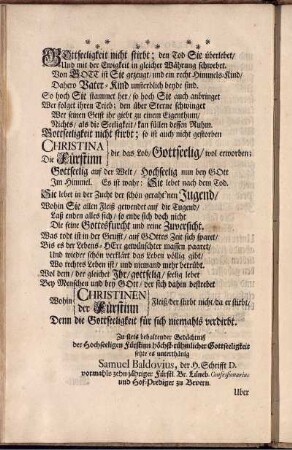 GOttseeligkeit nicht stirbt; den Tod Sie überlebet/
Und mit der Ewigkeit in gleicher Währung schwebet.
Von GOTT ist Sie gezeugt/ und ein recht Himmels-Kind/
Dahero Vater-Kind unsterblich beyde sind.
So hoch Sie stammet her/ so hoch Sie auch anbringet
Wer folget ihren Trieb; den über Sterne schwinget
Wer seinen Geist ihr giebt zu einem Eigenthum/
Nichts/ als die Seligkeit/ kan füllen dessen Ruhm.
Gottseeligkeit nicht stirbt; so ist auch nicht gestorben
CHRISTINA
Die Fürstinn } die das Lob/ Gottseelig/ wol erworben:
Gottseelig auf der Welt/ Hochseelig nun bey GOtt
Im Himmel. Es ist wahr: Sie lebet nach dem Tod.
Sie lebet in der Zucht der schön gerahtnen Jugend/
Wohin Sie allen Fleiß gewendet auf die Tugend/
Laß enden alles sich/ so ende sich doch nicht
Die seine Gottesfurcht und reine Zuversicht.
Was todt ist in der Grufft/ auf GOttes Zeit sich sparet/
Bis es der Lebens-HErr gewünschter massen paaret/
Und wieder schön verklärt das Leben völlig gibt/
Wo rechtes Leben ist/ und niemand mehr betrübt.
Wol dem/ der gleichet Ihr/ gottselig/ seelig lebet
Bey Menschen und bey GOtt/ der sich dahin bestrebet
Wohin { CHRISTINEN
der Fürstinn } Fleiß/ der stirbt nicht/ da er stirbt/
Denn die Gottseeligkeit für sich niemahls verdirbt.
Zu stets behaltender Gedächtniß
der Hochseeligen Fürstinn höchst-rühmlicher Gottseeligkeit
setzte es unterthänig
Samuel Baldovius, der H. Schrifft D.
vormahls zehn jähriger Fürstl. Br. Lüneb. Confessionarius
und Hof-Prediger zu Bevern.
Uber